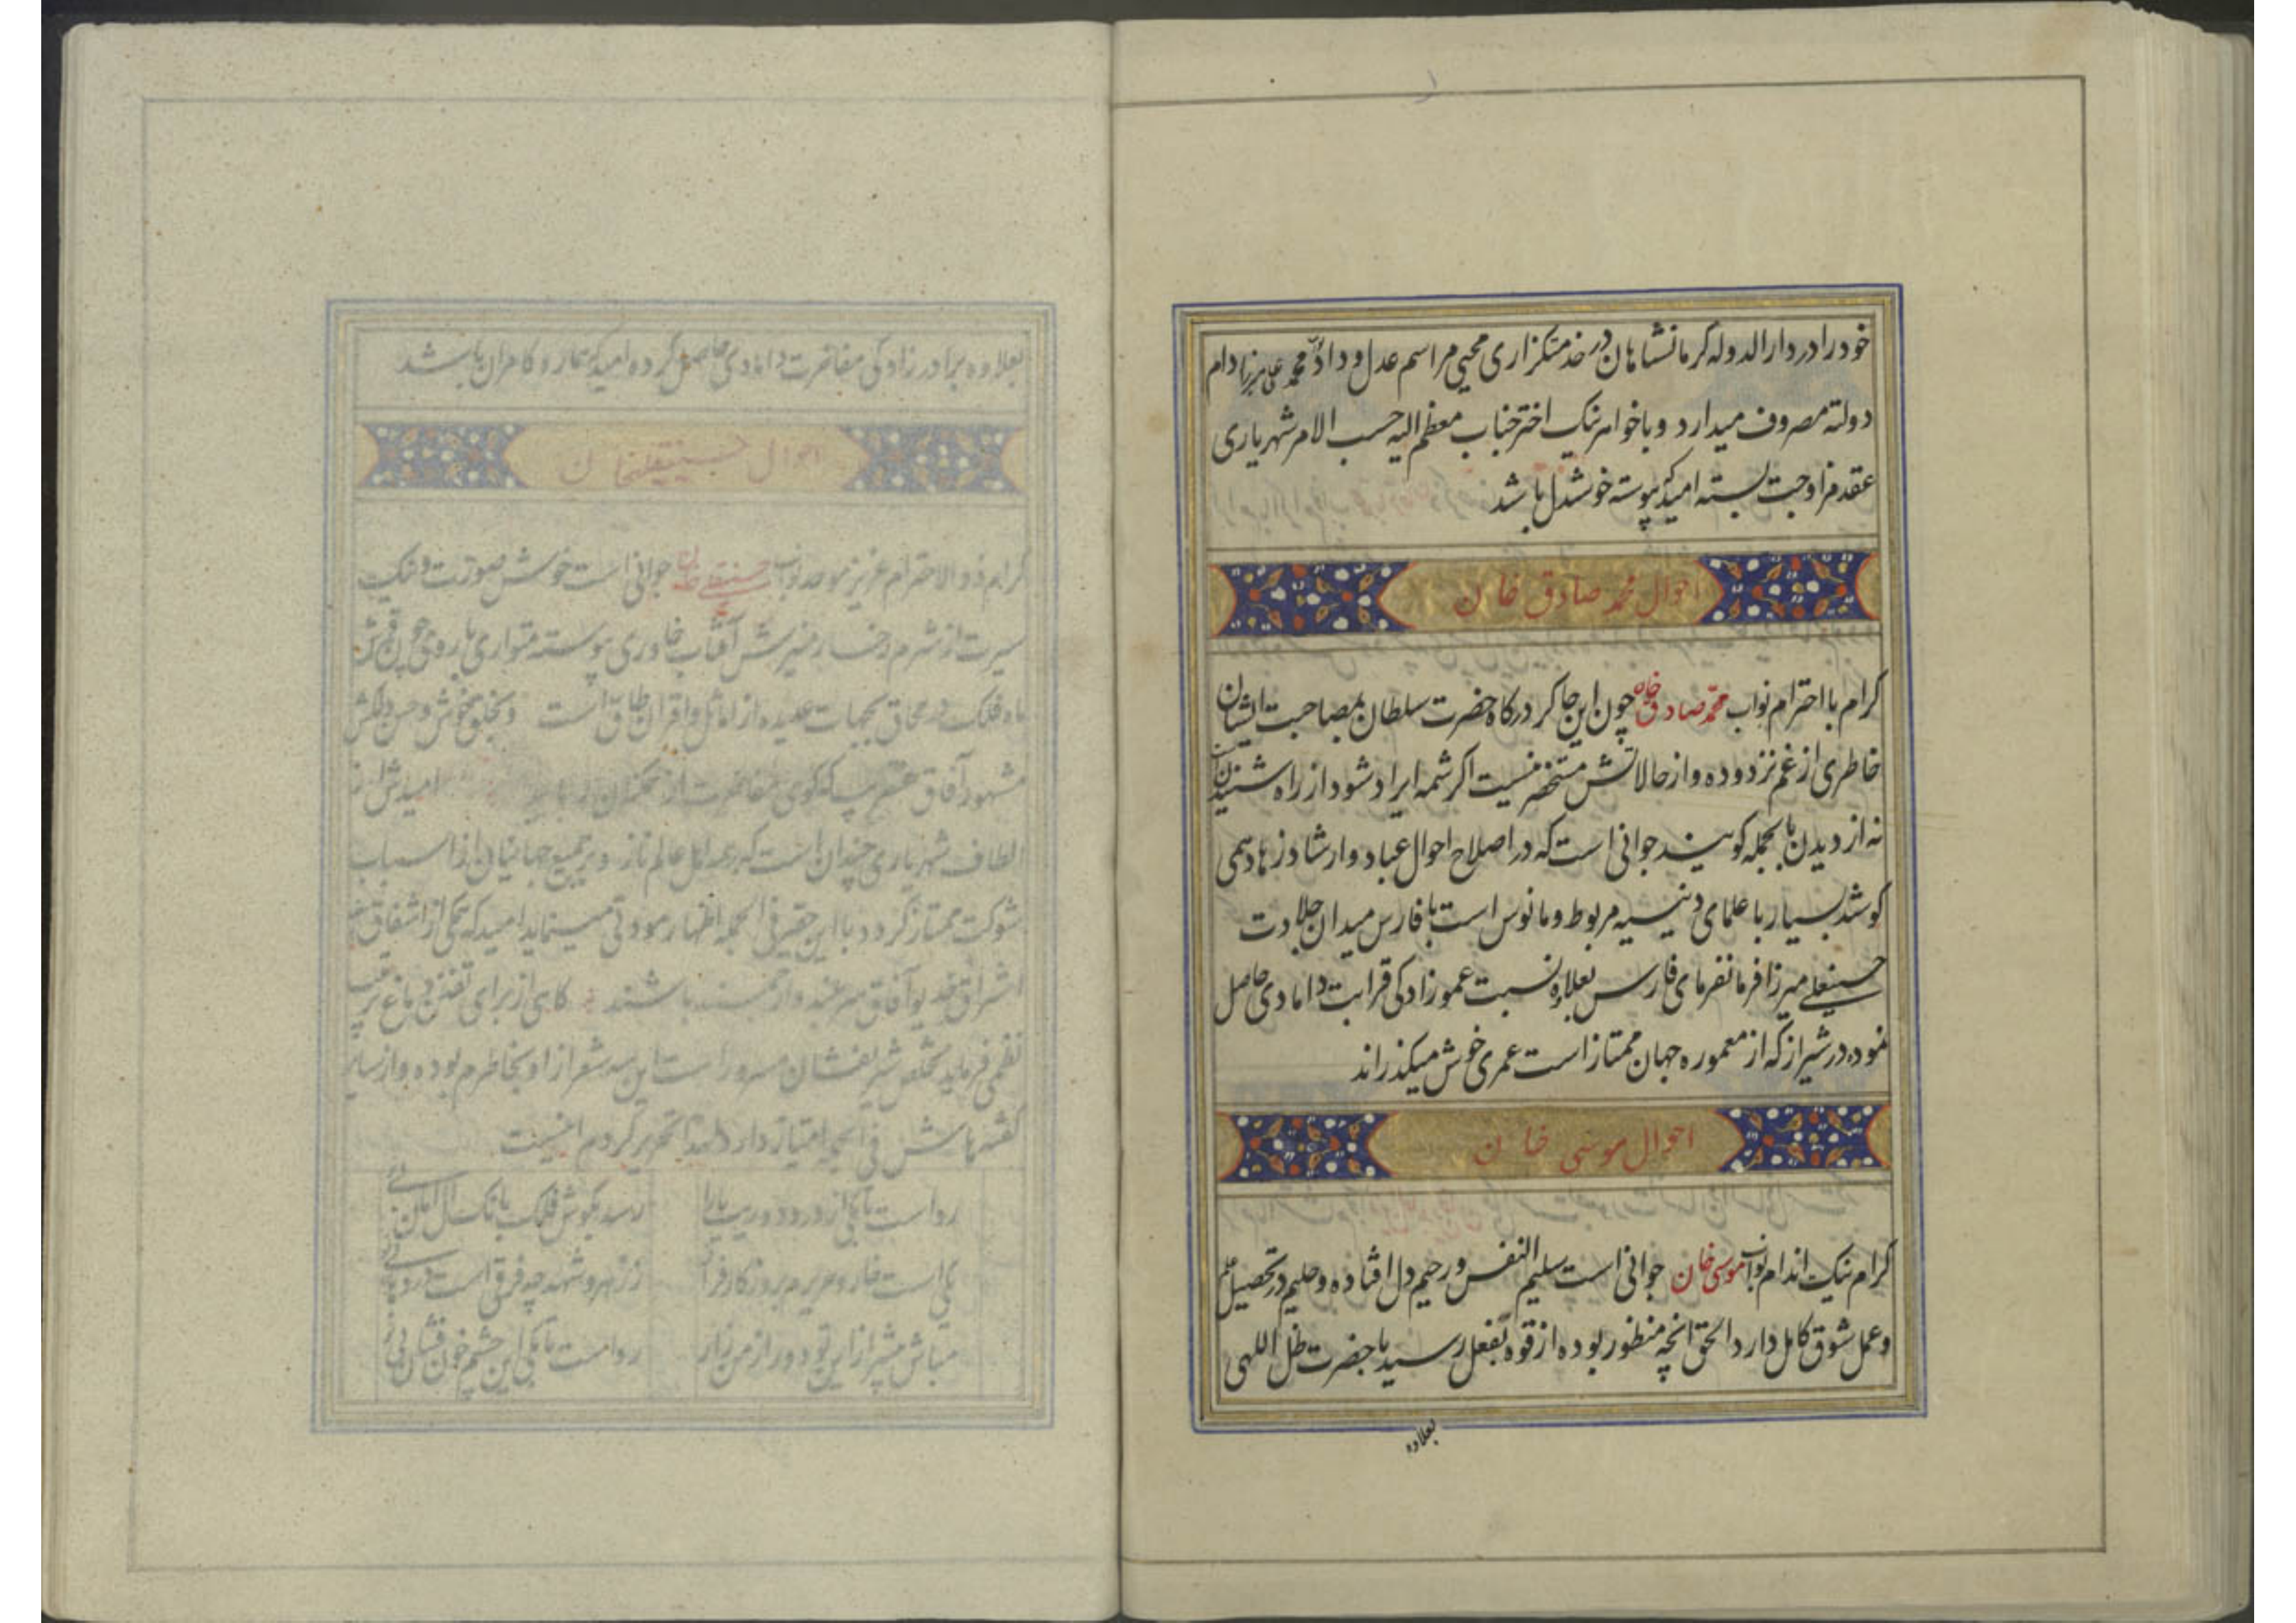 خود را در دار الدوله کرمانشاهان در خدمتکزاری محیی مراسم عدل و داد محمد علی میرزا دام
دولته مصروف میدارد و با خواهر نیک اختر جناب معظم الیه حسب الامر شهریاری
عقد مزاوجت بسته امید که پیوسته خوشدل باشد
احوال محمد صادق خان
کرام با احترام نواب محمد صادق خان چون این چاکر درکاه حضرت سلطان بمصاحبت ایشان
خاطری از غم نزدوده و از حالاتش مستحضر نیست اکر شمه ایراد شود از راه شنیدن است
نه از دیدن بالجمله کویند جوانی است که در اصلاح احوال عباد و ارشاد زهاد همی
کوشد بسیار با علمای دینیه مربوط و مانوس است با فارس میدان جلادت
حسینعلی میرزا فرمانفرمای فارس بعلاوه نسبت عموزادکی قرابت دامادی حاصل
نموده در شیراز که از معموره جهان ممتاز است عمری خوش میکذراند
احوال موسی خان
کرام نیک اندام نواب موسی خان جوانی است سلیم النفس و رحیم دل افتاده و حلیم در تحصیل علم
و عمل شوق کامل دارد الحق انچه منظور بوده از قوه بفعل رسید با حضرت ظل اللهی
بعلاوه
بعلاوه برادرزادکی مفاخرت دامادی حاصل کرده امید که کامران باشد
احوال حسینقلیخان
کرام ذوالاحترام عزیز نواب حسینقلی خان جوانی است خوش صورت و نیک
سیرت از شرم رخسار منیرش آفتاب خاوری پیوسته متواری با روی چون قمرش
ماه فلک در محاق بجهات عدیده از امثال و اقران طاق است و بخلق خوش و حسن دلکش
مشهور آفاق کوی مفاخرت از همکنان امیدش از
الطاف شهریاری چندان است که بر اهل عالم ناز و بر جمیع جهانیان از اسباب
شوکت ممتاز کردد با این حقیر فی الجمله اظهار مودتی مینماید امید که همکی از اشفاق
اشراق خدیو آفاق سربلند و ارجمند باشند کاهی از برای تفنن دماغ
نظمی فرماید تخلص شریفشان سرور است این سه شعر از او بخاطرم بوده و از سایر
کفتهایش فی الجمله امتیاز دارد لهذا تحریر کردم اینست
رواست تا بکی از درد دوریت یارا رسد بکوش فلک بانک الامان
ز زهر و شهد چه فرق است
مباش بیشتر از این تو دور از من زار رواست تا بکی این چشم خون فشان